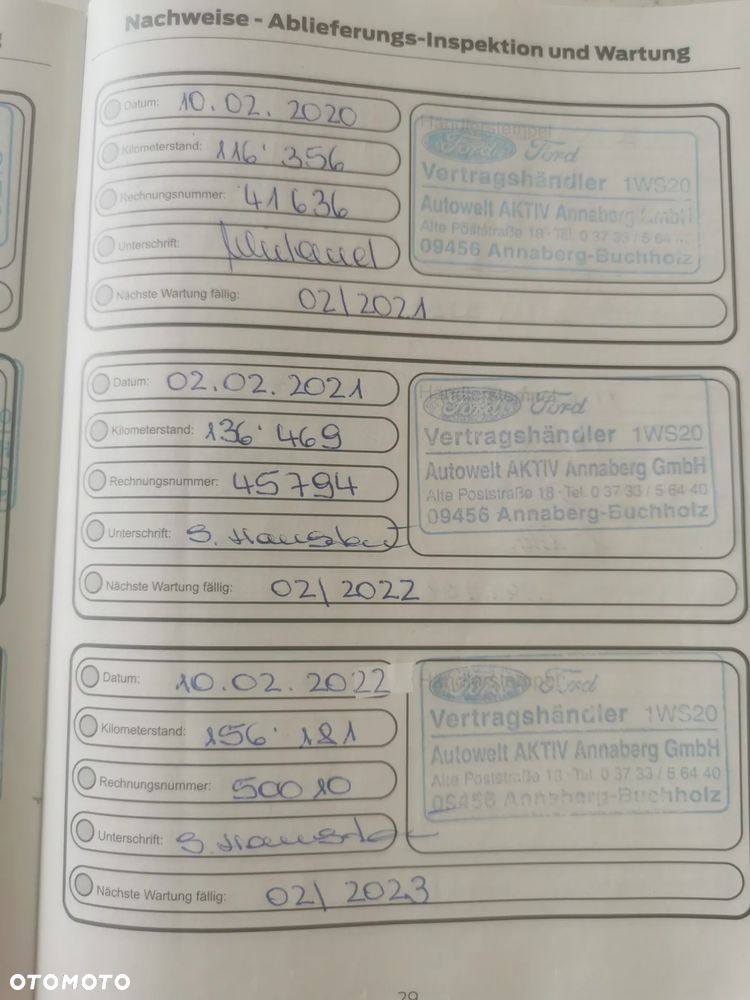 Nachweise - Ablieferungs-Inspektion und Wartung
Datum: 10.02.2020
Kilometerstand: 116.356
Rechnungsnummer: 41636
Unterschrift:
Nächste Wartung fällig: 02/2021
Händlerstempel
Ford Ford
Vertragshändler 1WS20
Autowelt AKTIV Annaberg GmbH
Alte Poststraße 18 · Tel. 0 37 33 / 5 64
09456 Annaberg-Buchholz
Datum: 02.02.2021
Kilometerstand: 136.469
Rechnungsnummer: 45794
Unterschrift: S.
Nächste Wartung fällig: 02/2022
Händlerstempel
Ford Ford
Vertragshändler 1WS20
Autowelt AKTIV Annaberg GmbH
Alte Poststraße 18 · Tel. 0 37 33 / 5 64 40
09456 Annaberg-Buchholz
Datum: 10.02.2022
Kilometerstand: 156.181
Rechnungsnummer: 50010
Unterschrift: S.
Nächste Wartung fällig: 02/2023
Händlerstempel
Ford
Vertragshändler 1WS20
Autowelt AKTIV Annaberg GmbH
Alte Poststraße 18 · Tel. 0 37 33 / 5 64 40
09456 Annaberg-Buchholz
29
OTOMOTO